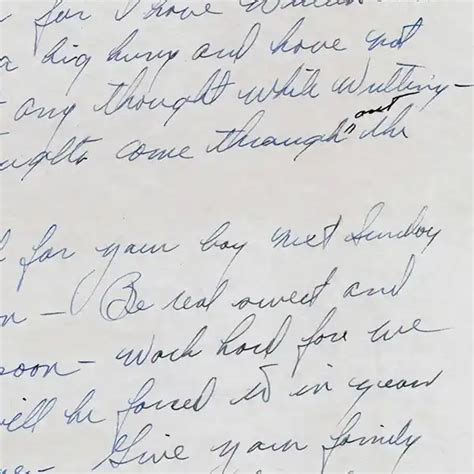 for I have
a big hury and have not
any thought while writting —
come through out the
for your boy next Sunday
— Be real sweet and
soon — work hard for we
be forced to in your
Give your family